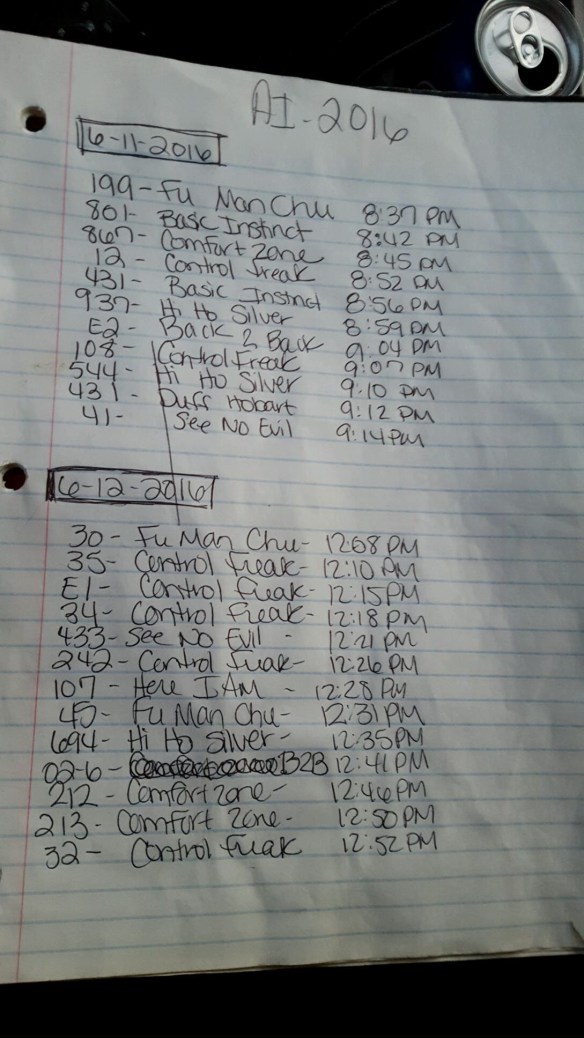 AI-2016
6-11-2016
199- Fu Man Chu 8:37 PM
801- Basc Instinct 8:42 PM
867- Comfort Zone 8:45 PM
12- Control freak 8:52 PM
431- Basic Instinct 8:56 PM
937- Hi Ho Silver 8:59 PM
E2- Back 2 Back 9:04 PM
108- Control Freak 9:07 PM
544- Hi Ho Silver 9:10 PM
431- Duff Hobart 9:12 PM
41- See No Evil 9:14 PM
6-12-2016
30- Fu Man Chu- 12:08 PM
35- Control freak- 12:10 PM
E1- Control freak- 12:15PM
34- Control freak- 12:18 PM
433- See No Evil - 12:21 PM
242- Control freak- 12:26 PM
107- Here I AM - 12:28 PM
45- Fu Man Chu- 12:31 PM
694- Hi Ho Silver- 12:35PM
02-6- B2B 12:41 PM
212- Comfort zone- 12:46 PM
213- Comfort Zone- 12:50 PM
32- Control freak 12:52 PM